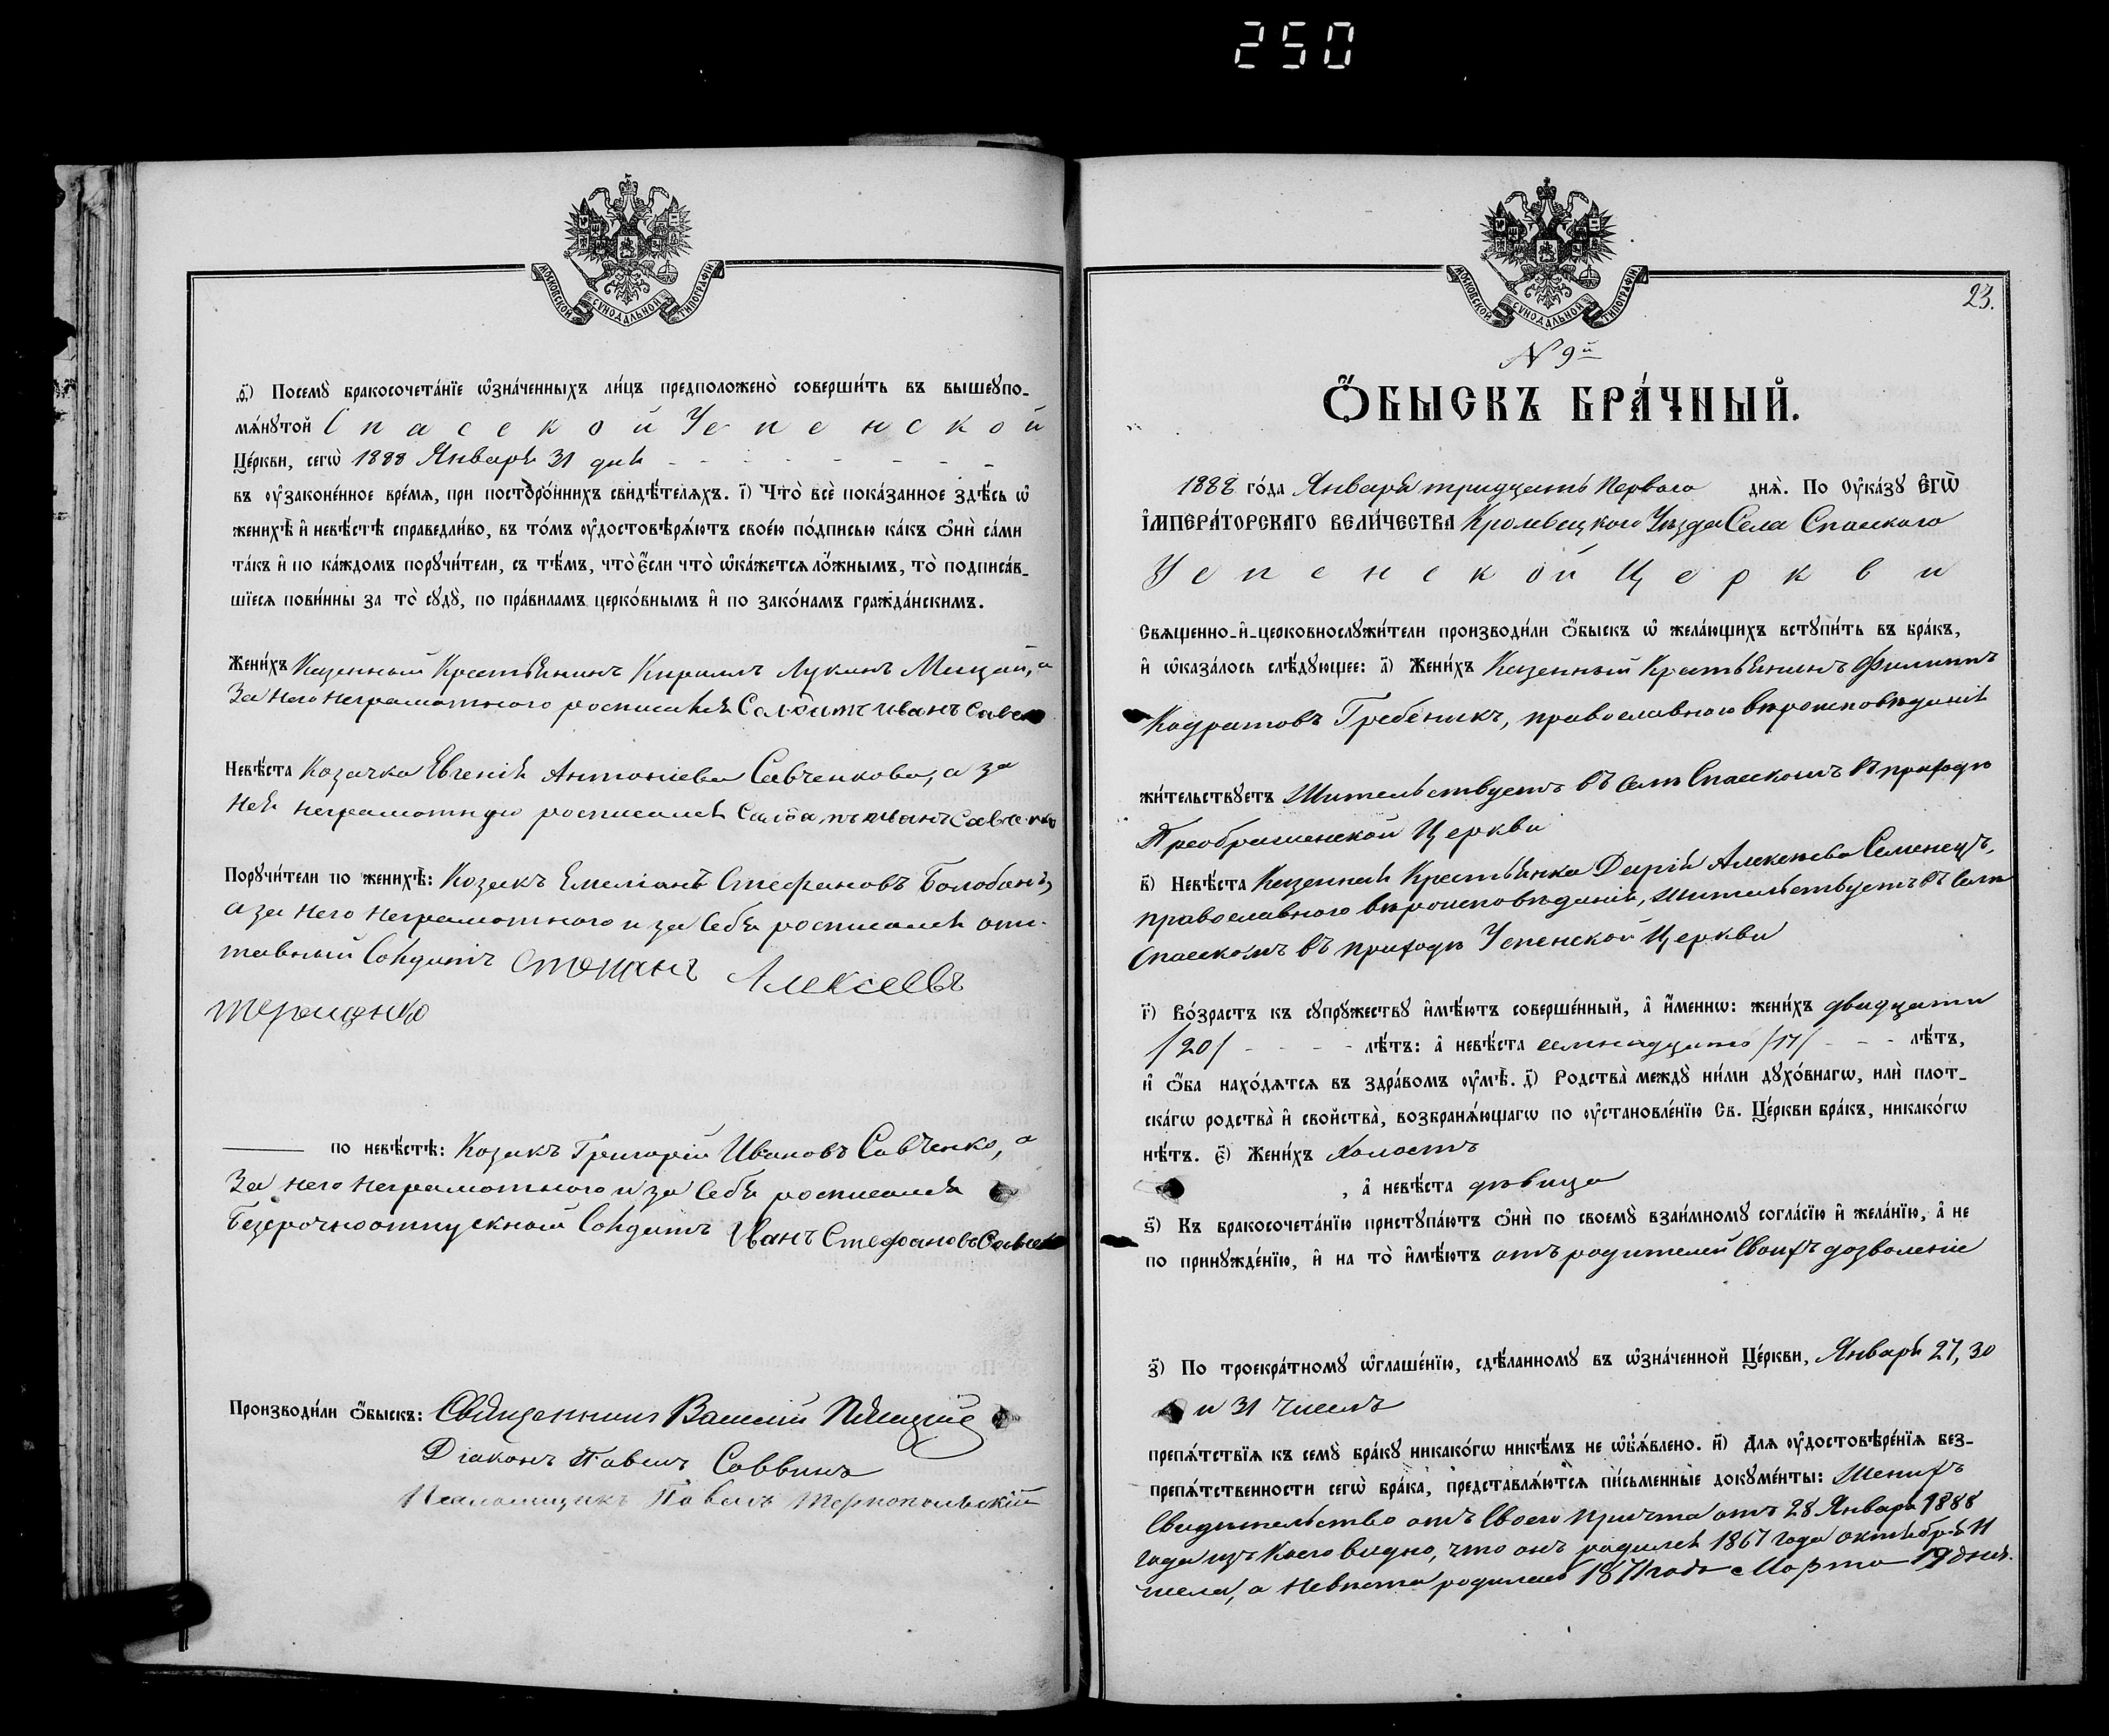 250
МОСКОВСКОЙ СѴНОДАЛЬНОЙ ТИПОГРАФІИ
ѳ҃) Посемꙋ̀ бракосочета́нїе ѡ҆зна́ченныхъ ли́цъ предположено̀ соверши́ть въ вышеꙋпо-
мѧ́нꙋтой Спасской Успенской
Це́ркви, сегѡ̀ 1888 Января 31 дня
въ ᲂу҆зако́ненное вре́мѧ, при посторо́ннихъ свидѣ́телѧхъ. і҃) Что̀ всѐ пока́занное здѣ́сь ѡ҆
женихѣ̀ и҆ невѣ́стѣ справедли́во, въ то́мъ ᲂу҆достовѣрѧ́ютъ свое́ю по́дписью ка́къ ѻ҆нѝ са́ми
та́къ и҆ по ка́ждомъ порꙋчи́тели, съ тѣ́мъ, что̀ є҆́сли что̀ ѡ҆ка́жетсѧ ло́жнымъ, то̀ подписа́в-
шїесѧ пови́нны за то̀ сꙋдꙋ̀, по пра́виламъ церко́внымъ и҆ по зако́намъ гражда́нскимъ.
Жени́хъ Казенный Крестьянинъ Кирилъ Лукинъ Мицай, а
За него неграмотного росписался Солдатъ Иванъ
Невѣ́ста Козачка Евгенія Антоніева Савченкова, а за
нея неграмотную росписался Солдатъ Иванъ Савченко
Порꙋчи́тели по женихѣ̀: Козакъ Емеліанъ Стефановъ Болобанъ,
а за него неграмотного и за себя росписался отс-
тавный Солдатъ Степанъ Алексеевъ
Терещенко
по невѣ́стѣ: Козакъ Григорій Ивановъ Савченко, а
За него неграмотного и за себя росписался
безсрочноотпускной Солдатъ Иванъ Стефановъ
Производи́ли ѻ҆́быскъ: Священникъ Василій
Діаконъ Павелъ Саввинъ
Псаломщикъ Павелъ Тернопольскій
МОСКОВСКОЙ СѴНОДАЛЬНОЙ ТИПОГРАФІИ
23.
№ 9й
Ѻ҆́БЫСКЪ БРА́ЧНЫЙ.
1888 го́да Января тридцать Первого днѧ̀. По Оу҆ка́зꙋ Є҆ГѠ̀
І҆МПЕРА́ТОРСКАГО ВЕЛИ́ЧЕСТВА Кролевецкого Уезда Села Спасского
Успенской Церкви
Свѧщенно-и҆-церковнослꙋжи́тели производи́ли ѻ҆́быскъ ѡ҆ жела́ющихъ встꙋпи́ть въ бра́къ,
и҆ ѡ҆каза́лось слѣ́дꙋющее: а҃) Жени́хъ Казенный Крестьянинъ Филиппъ
Кодратовъ Гребеникъ, православного вѣроисповѣданія
жи́тельствꙋетъ Жительствуетъ въ селѣ Спасскомъ въ приходѣ
Преображенской Церкви
в҃) Невѣ́ста Казенная Крестьянка Дарія Алексѣева Семенецъ,
православного вѣроисповѣданія, жительствуетъ въ селѣ
Спасскомъ въ приходѣ Успенской Церкви
г҃) Во́зрастъ къ сꙋпрꙋ́жествꙋ и҆мѣ́ютъ соверше́нный, а҆ и҆́меннѡ: жени́хъ двадцати
/20/ - - - - лѣ́тъ: а҆ невѣ́ста семнадцать /17/ - - - лѣ́тъ,
и҆ ѻ҆́ба нахо́дѧтсѧ въ здра́вомъ ᲂу҆мѣ̀. д҃) Родства̀ междꙋ̀ ни́ми дꙋхо́внагѡ, илѝ плот-
ска́гѡ родства̀ и҆ свойства̀, возбранѧ́ющагѡ по ᲂу҆становле́нїю Св. Це́ркви бра́къ, никако́гѡ
нѣ́тъ. є҃) Жени́хъ холостъ
, а҆ невѣ́ста дѣвица
ѕ҃) Къ бракосочета́нїю пристꙋпа́ютъ ѻ҆нѝ по своемꙋ̀ взаи́мномꙋ согла́сїю и҆ жела́нїю, а҆ не
по принꙋжде́нїю, и҆ на то̀ и҆мѣ́ютъ отъ родителей своихъ дозволеніе
з҃) По троекра́тномꙋ ѡ҆глаше́нїю, сдѣ́ланномꙋ въ ѡ҆зна́ченной Це́ркви, Января 27, 30
и 31 чиселъ
препѧ́тствїѧ къ семꙋ̀ бра́кꙋ никако́гѡ никѣ́мъ не ѡ҆б̾ѧ́влено. и҃) Длѧ ᲂу҆достовѣре́нїѧ без-
препѧ́тственности сегѡ̀ бра́ка, представлѧ́ютсѧ пи́сьменные докꙋме́нты: Женихъ
Свидѣтельство отъ своего причта отъ 28 Января 1888
года изъ коего видно, что онъ родился 1867 года октября 11
числа, а Невѣста родилась 1871 года Марта 19 дня.